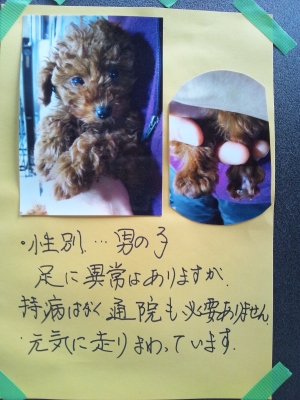 ・性別…男の子
足に異常はありますが、
持病はなく通院も必要ありません。
元気に走りまわっています。